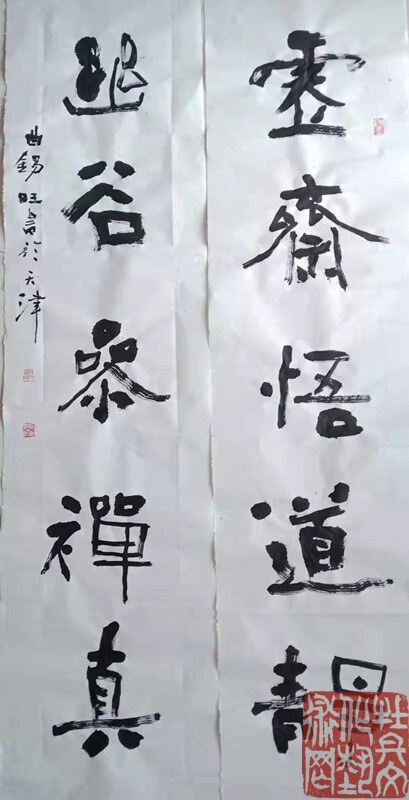 虛齋悟道靜
幽谷參禪真
曲錫旺書於天津